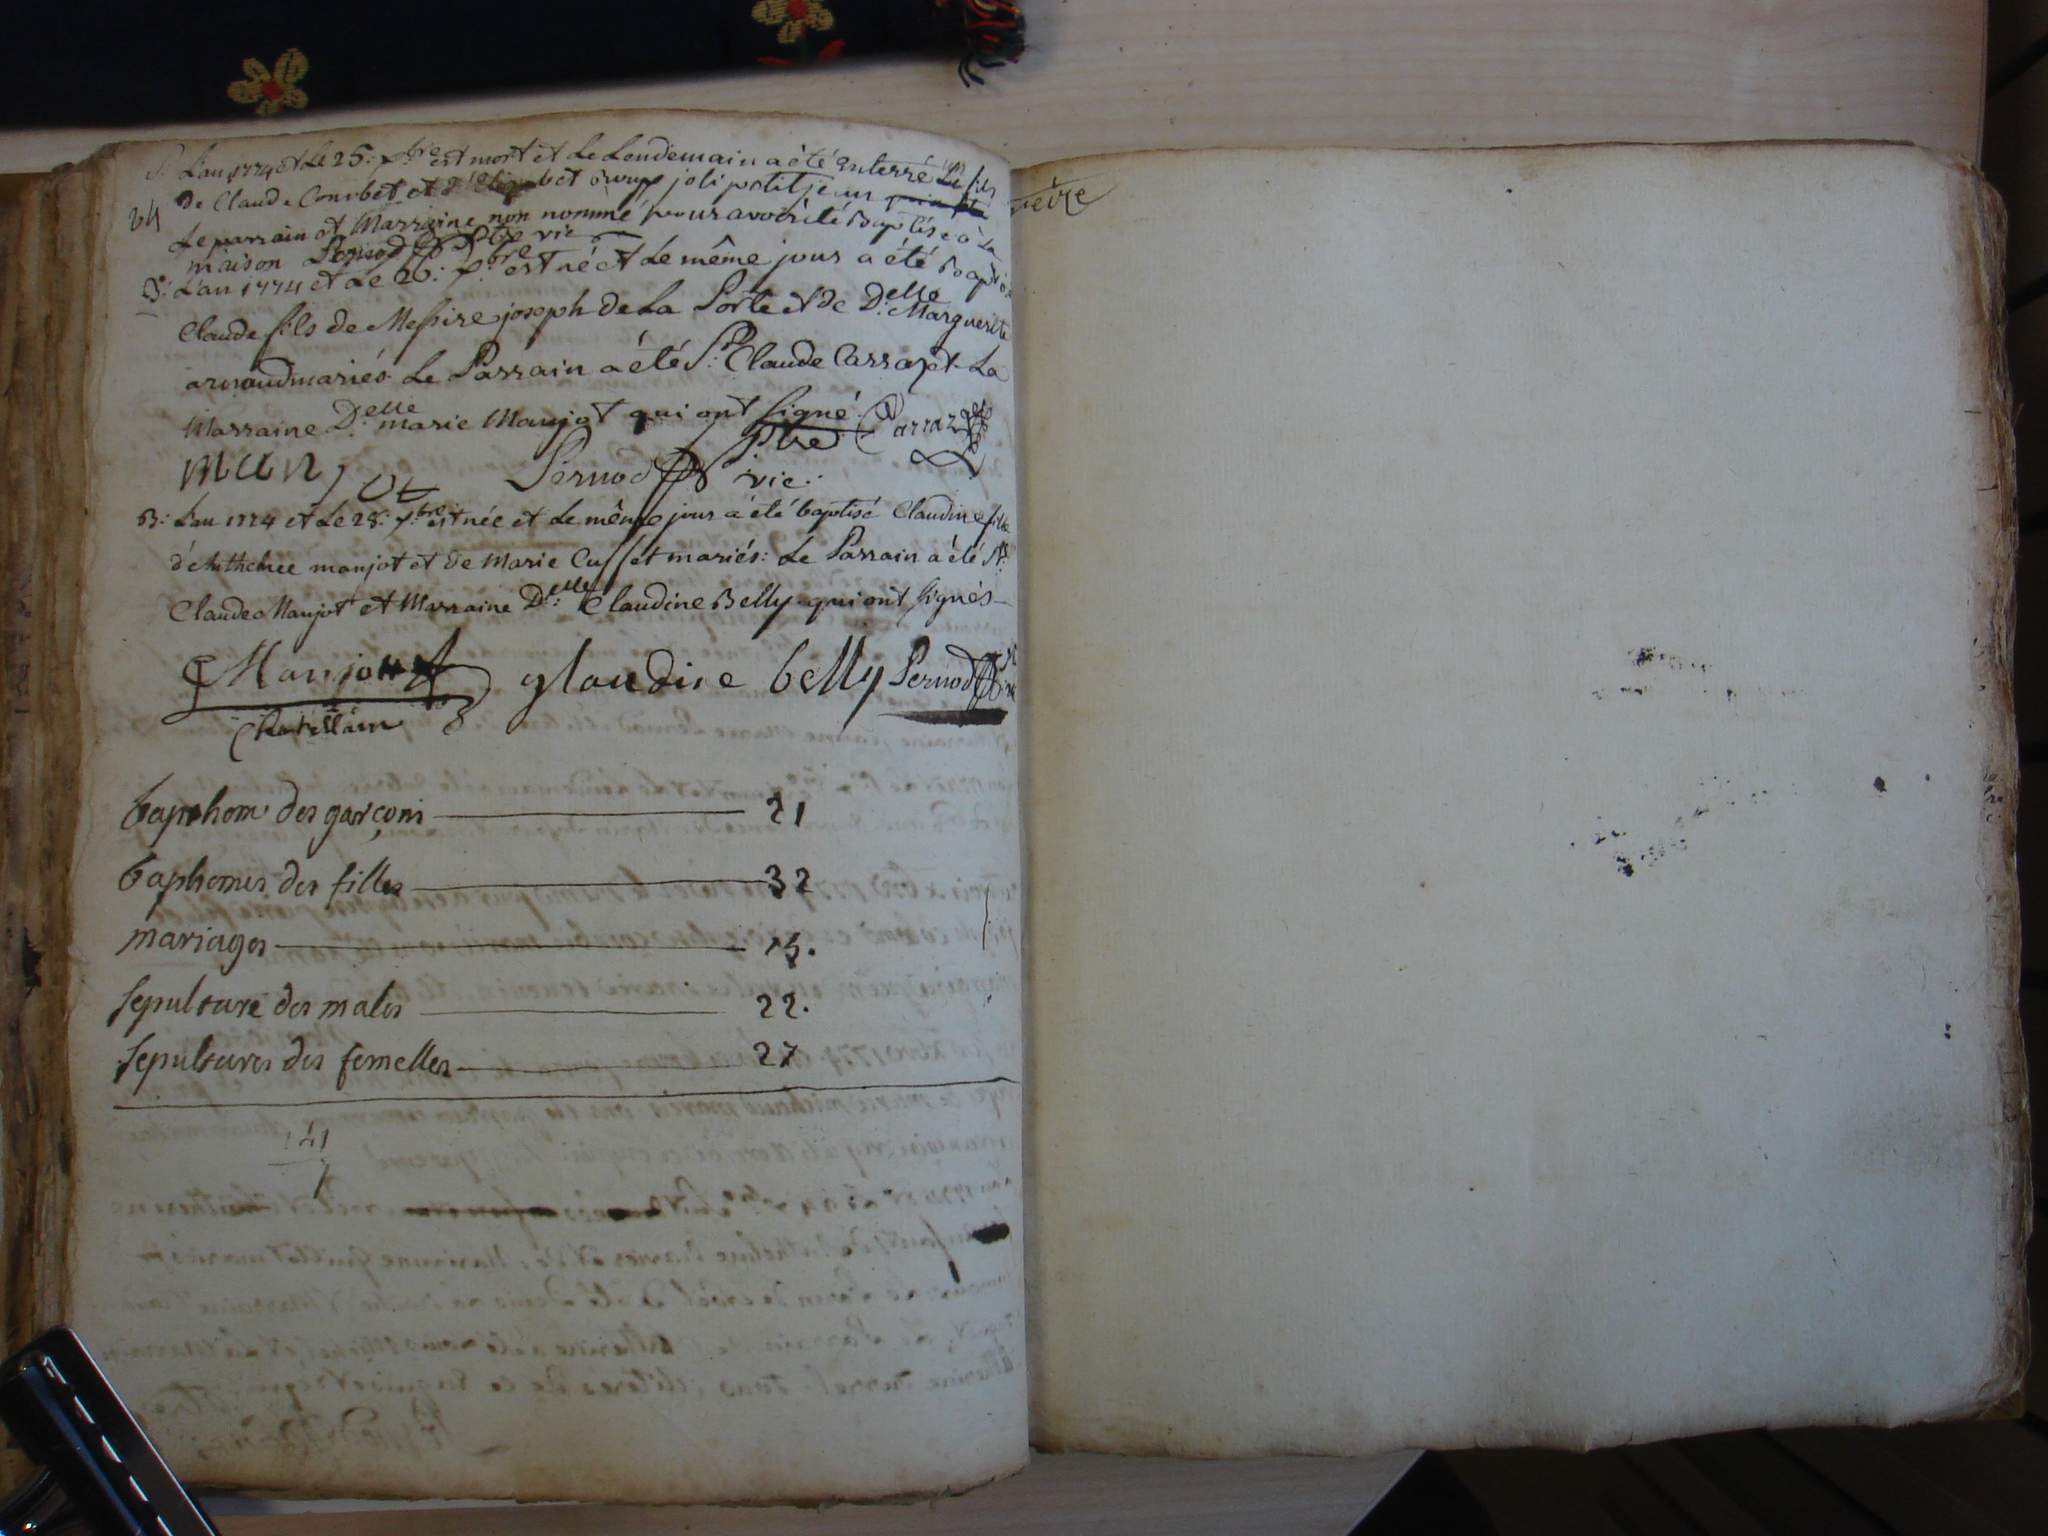 S. L'an 1774 et Le 25: xbre est mort et Le Lendemain a été enterré un fils
de Claude Combet et d'Elizabet joli petit jean
24
Le parrain et Marraine non nommé pour avoir été Baptisé a La
maison Pernod ptre vic
B: L'an 1774 et Le 26: xbre est né et Le même jour a été Baptisé
Claude fils de Messire joseph de La Porte et de Delle Marguerite
arnaud mariés Le Parrain a été Sr. Claude Carraz et La
Marraine Delle marie Manjot qui ont signé. Carraz
manjot Pernod ptre vic:
B: L'an 1774 et Le 28: xbre est née et Le même jour a été baptisé Claudine fille
d'Anthelmee manjot et de Marie Cusset mariés: Le Parrain a été Sr.
Claude Manjot et Marraine Delle Claudine Belly qui ont signés
Manjot glaudine belly Pernod
Chatellain
des garçons 21
des filles 32
mariages 15.
sepulture des males 22.
sepultures des femelles 27